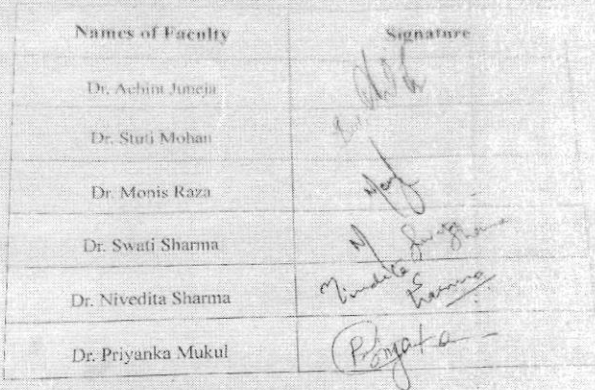 Names of Faculty Signature
Dr. Achint Juneja
Dr. Stuti Mohan
Dr. Monis Raza
Dr. Swati Sharma Swati Sharma
Dr. Nivedita Sharma Nivedita Sharma
Dr. Priyanka Mukul Priyanka